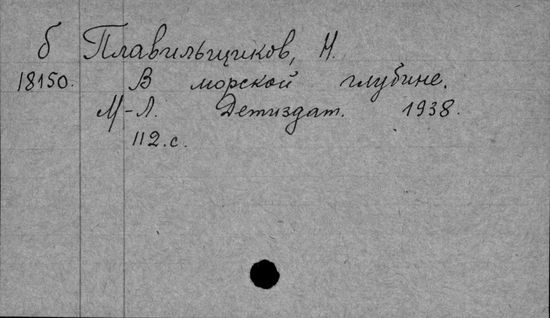 б Плавильщиков, Н.
18150. В морской глубине.
М-Л. Детиздат. 1938.
112.с.